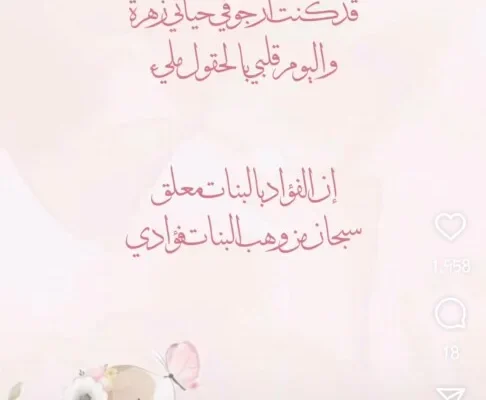 قد كنت أرجو في حياتي زهرة
واليوم قلبي بالحقول مليء
إن الفؤاد بالبنات معلق
سبحان من وهب البنات فؤادي
1.558
18